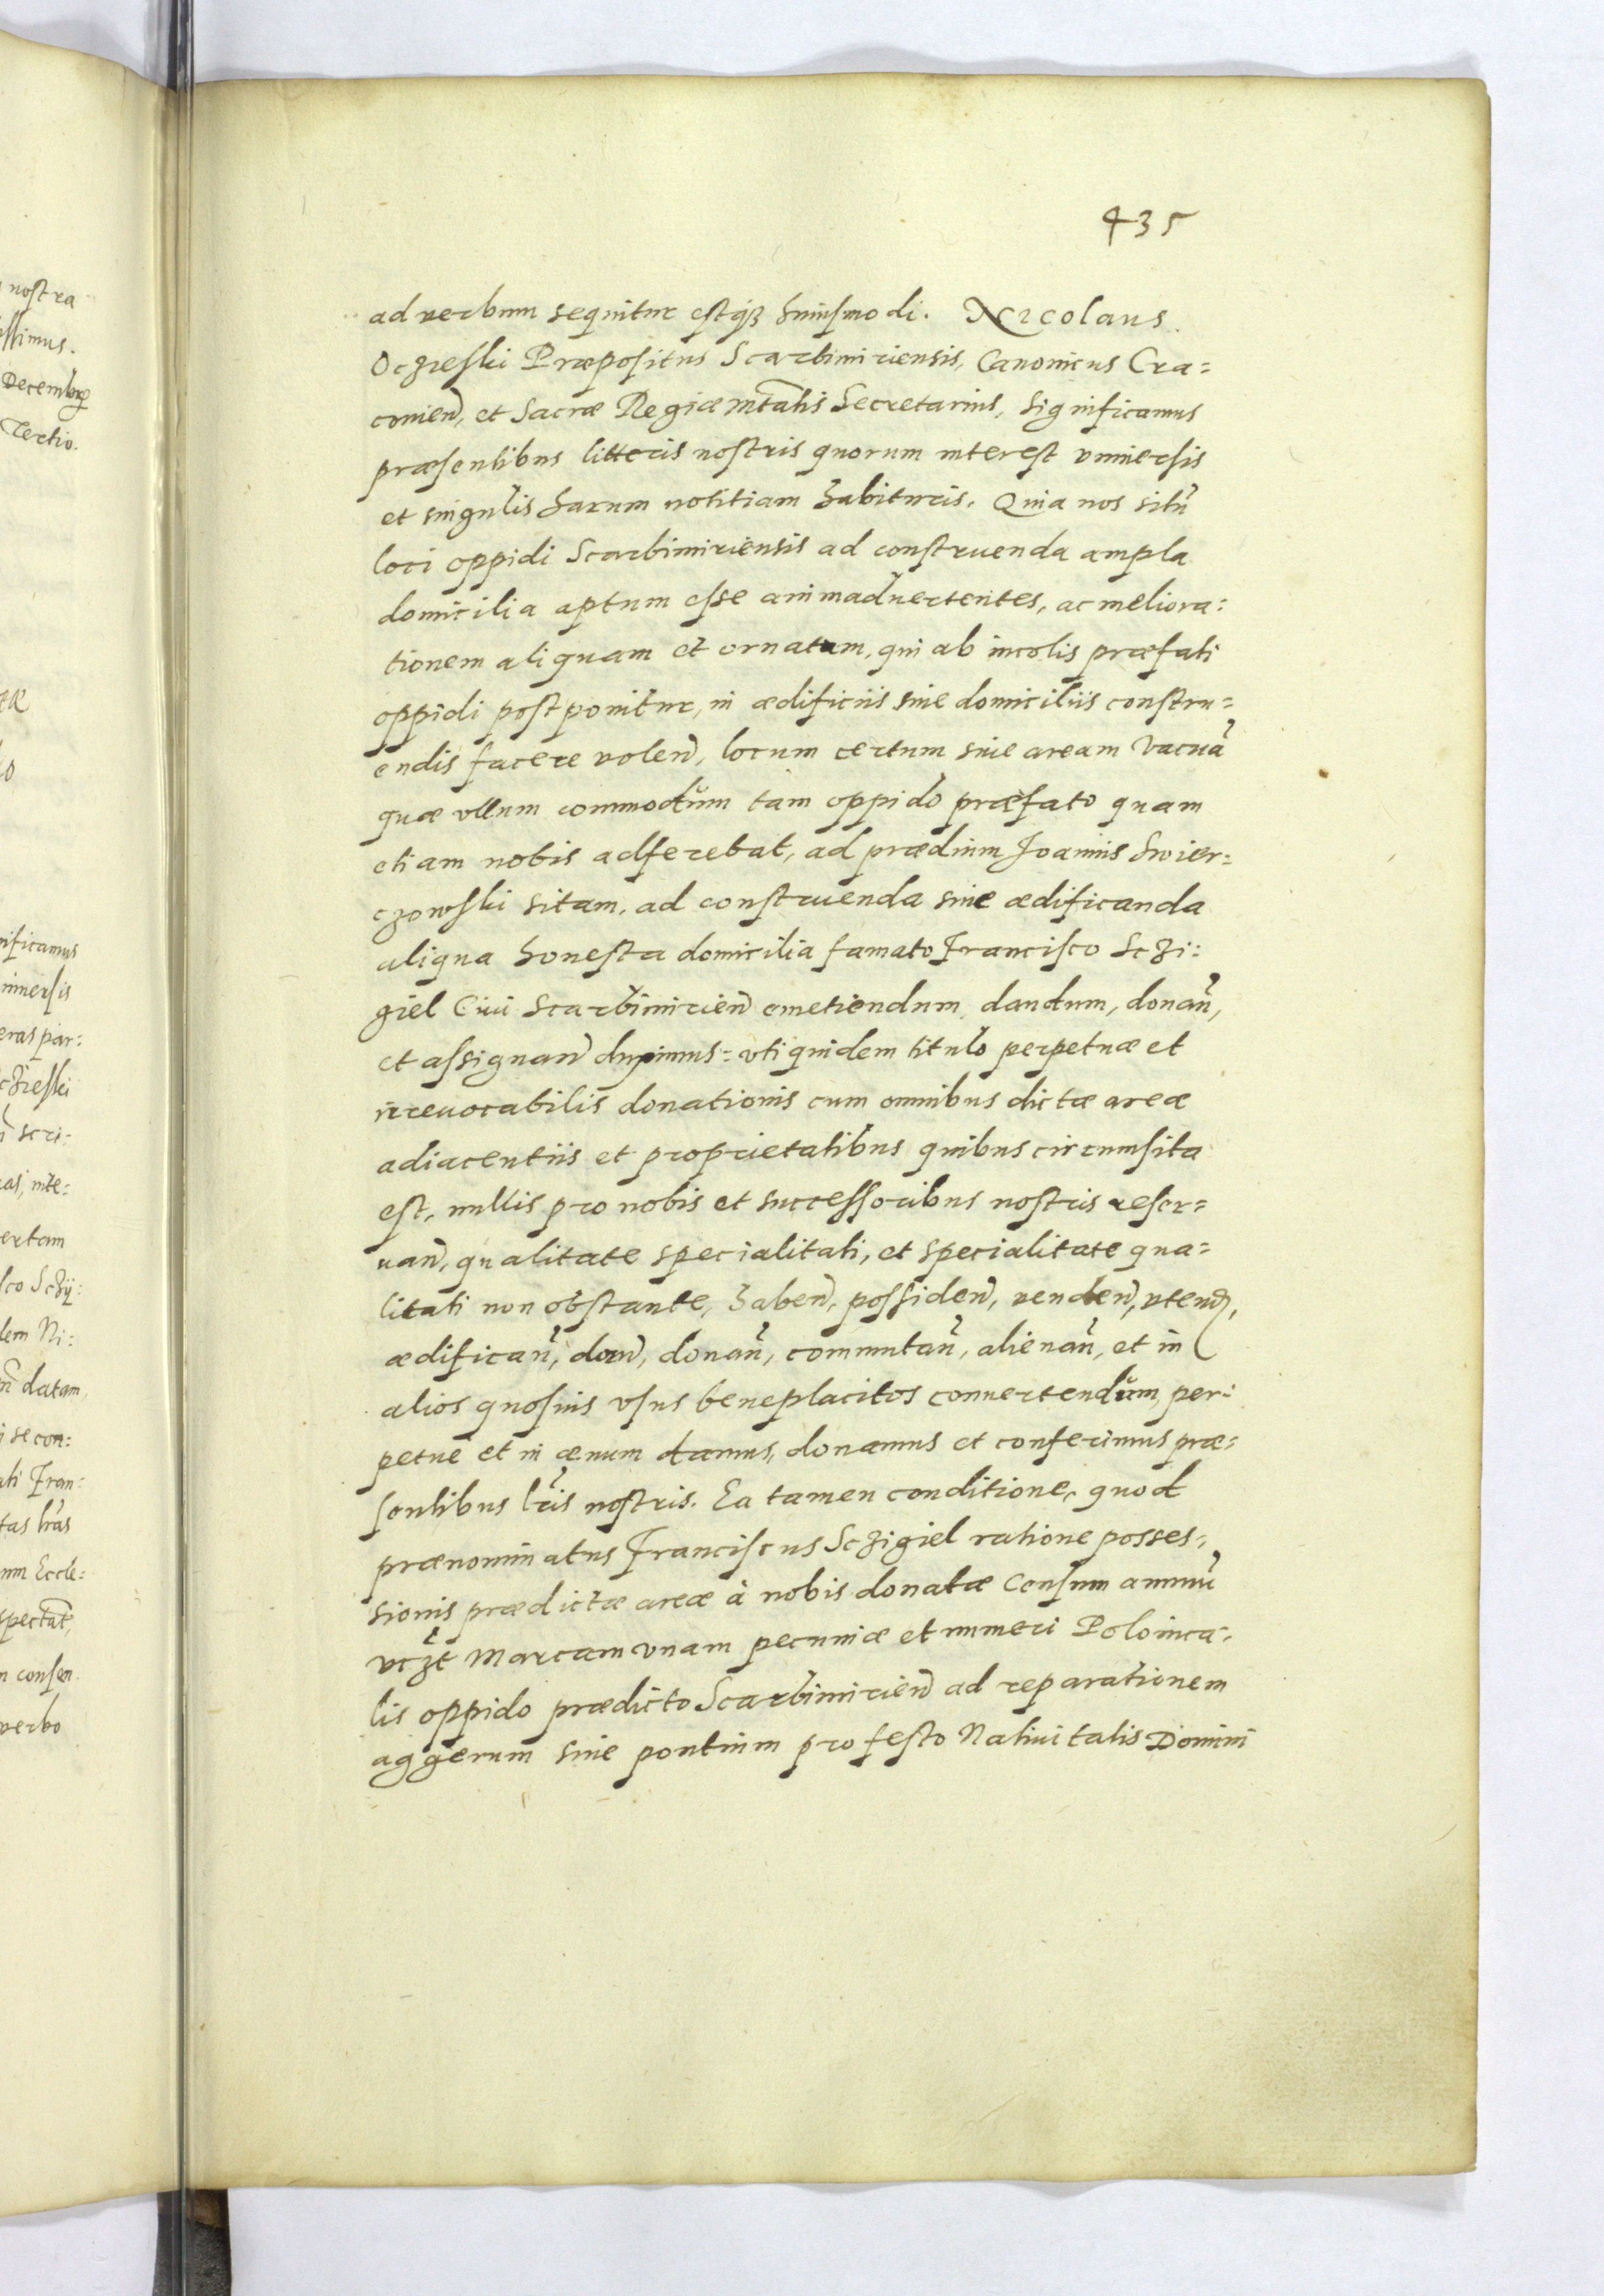 435
ad verbum sequitur estq3 huiusmodi. Nicolaus
Oczieski Præpositus Scarbimiriensis, Canonicus Cra=
couien̄, et Sacræ Regiæ Mtatis Secretarius, Significamus
præsentibus litteris nostris quorum interest vniuersis
et singulis harum notitiam habituris. Quia nos sitū
loci oppidi Scarbimiriensis ad construenda ampla
domicilia aptum esse animaduertentes, ac meliora=
tionem aliquam et ornatum, qui ab incolis præfati
oppidi postponitur, in ædificiis siue domiciliis constru=
endis facere volen̄, locum certum siue aream vacuā
quæ vllum commodum tam oppido præfato quam
etiam nobis adferebat, ad prædium Joannis Swier=
czowski sitam, ad construenda siue ædificanda
aliqua honesta domicilia famato Francisco Sczi=
giel Ciui Scarbimirien̄ emetiendum, dandum, donan̄,
et assignan̄ duximus: vti quidem titulo perpetuæ et
irreuocabilis donationis cum omnibus dictæ areæ
adiacentiis et proprietatibus quibus circumsita
est, nullis pro nobis et successoribus nostris reser=
uan̄, qualitate specialitati, et specialitate qua=
litati non obstante, haben̄, possiden̄, venden̄, vten̄,
ædifican̄, dan̄, donan̄, commutan̄, alienan̄, et in
alios quosuis vsus beneplacitos conuertendum, per=
petue et in æuum damus, donamus et conferimus præ=
sentibus lris nostris. Ea tamen conditione, quod
prænominatus Franciscus Sczigiel ratione posses=
sionis prædictæ areæ à nobis donatæ Censum annuū
vczt Marcam vnam pecuniæ et numeri Polonica=
lis oppido prædicto Scarbimirien̄ ad reparationem
aggerum siue pontium pro festo Natiuitatis Domini
nostra
ssimus.
Decembris
Tertio.
nificamus
niuersis
eras par:
czieski
scri:
cas, inte:
ertam
sco Sczij:
dem Ni:
datam
se con:
ati Fran:
tas lras
um Eccle:
spectan̄t,
n consen
verbo